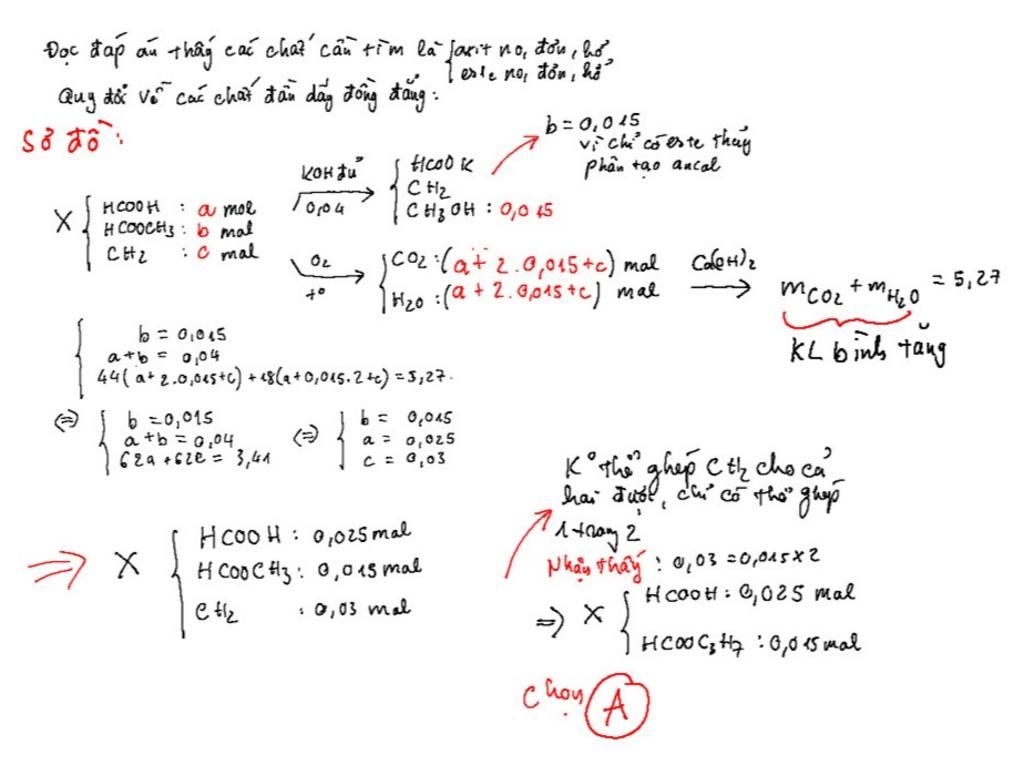 Đọc đáp án thấy các chất cần tìm là { axit no, đơn, hở
este no, đơn, hở
Quy đổi về các chất đầu dãy đồng đẳng:
Sơ đồ:
b = 0,015
vì chỉ có este thủy
phân tạo ancol
X { HCOOH : a mol
HCOOCH3 : b mol
CH2 : c mol
KOH đủ
0,04
{ HCOOK
CH2
CH3OH : 0,015
O2
t°
{ CO2 : (a + 2.0,015+c) mol
H2O : (a + 2.0,015+c) mol
Ca(OH)2
mCO2 + mH2O = 5,27
KL bình tăng
{ b = 0,015
a+b = 0,04
44(a+2.0,015+c) +18(a+0,015.2+c) = 5,27.
⇔ { b = 0,015
a+b = 0,04
62a+62c = 3,41
⇔ { b = 0,015
a = 0,025
c = 0,03
⇒ X { HCOOH : 0,025 mol
HCOOCH3 : 0,015 mol
CH2 : 0,03 mol
K° thể ghép CH2 cho cả
hai được, chỉ có thể ghép
1 trong 2
Nhận thấy : 0,03 = 0,015x2
⇒ X { HCOOH : 0,025 mol
HCOOC3H7 : 0,015 mol
Chọn A